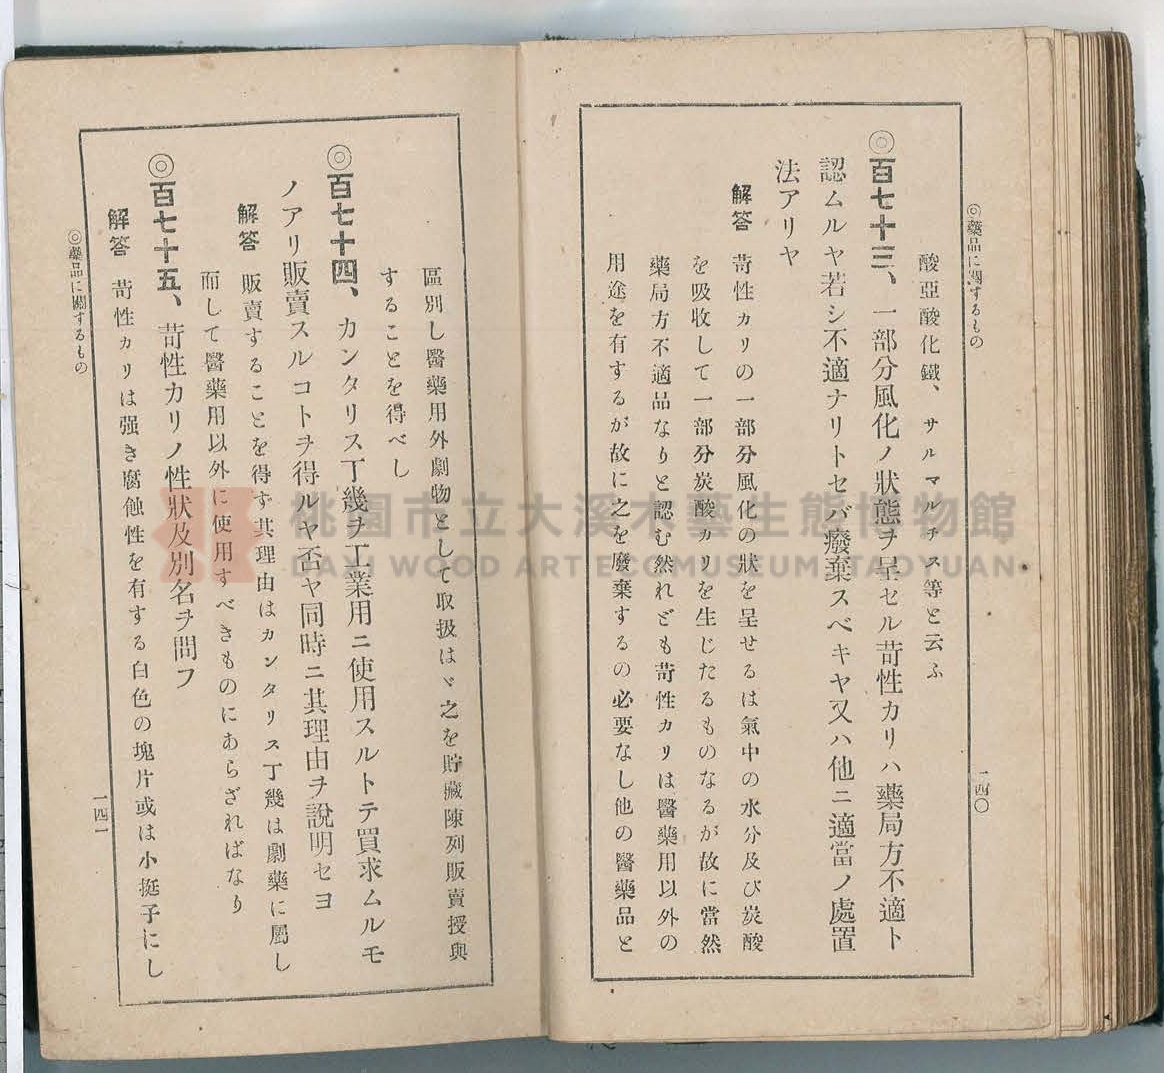 ◎藥品に關するもの
一四〇
酸亞酸化鐵、サルマルチス等と云ふ
◎百七十三、一部分風化ノ狀態ヲ呈セル苛性カリハ藥局方不適ト
認ムルヤ若シ不適ナリトセバ癈棄スベキヤ又ハ他ニ適當ノ處置
法アリヤ
解答 苛性カリの一部分風化の狀を呈せるは氣中の水分及び炭酸
を吸收して一部分炭酸カリを生じたるものなるが故に當然
藥局方不適品なりと認む然れども苛性カリは醫藥用以外の
用途を有するが故に之を廢棄するの必要なし他の醫藥品と
區別し醫藥用外劇物として取扱はヾ之を貯藏陳列販賣授與
することを得べし
◎百七十四、カンタリス丁幾ヲ工業用ニ使用スルトテ買求ムルモ
ノアリ販賣スルコトヲ得ルヤ否ヤ同時ニ其理由ヲ說明セヨ
解答 販賣することを得ず其理由はカンタリス丁幾は劇藥に屬し
而して醫藥用以外に使用すべきものにあらざればなり
◎百七十五、苛性カリノ性狀及別名ヲ問フ
解答 苛性カリは强き腐蝕性を有する白色の塊片或は小挺子にし
◎藥品に關するもの
一四一
桃園市立大溪木藝生態博物館
DAXI WOOD ART ECOMUSEUM TAOYUAN